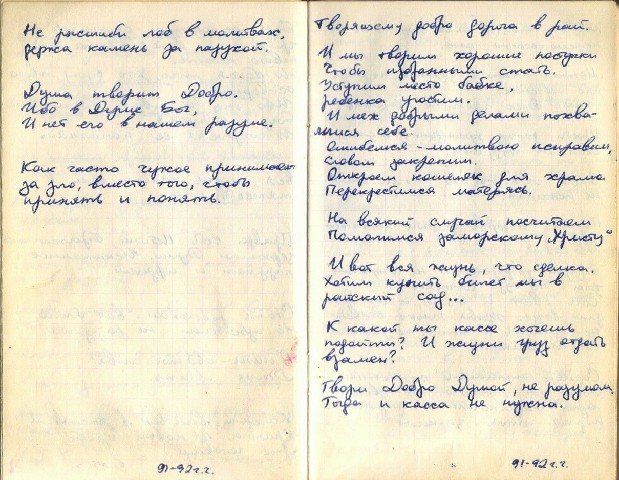 Не расшиби лоб в молитвах,
держа камень за пазухой.
Душа творит Добро.
Ибо в Душе Бог,
И нет его в нашем разуме.
Как часто чужое принимаем
за зло, вместо того, чтобы
принять и понять.
91-92 г.г.
Творящему добро дорога в рай.
И мы творим хорошие поступки
Чтобы избранными стать.
Уступим место бабке,
ребенка угостим.
И меж добрыми делами похва-
лимся себе.
Ошибемся - молитвою исправим,
Словом закрепим.
Откроем кошелек для храма
Перекрестимся матерясь.
На всякий случай посчитаем
Помолимся заморскому "Христу"
И вот вся жизнь, что сделка.
Хотим купить билет мы в
райский сад...
К какой ты кассе хочешь
подойти? И жизни груз отдать
взамен?
Твори Добро Душой, не разумом.
Тогда и касса не нужна.
91-92 г.г.